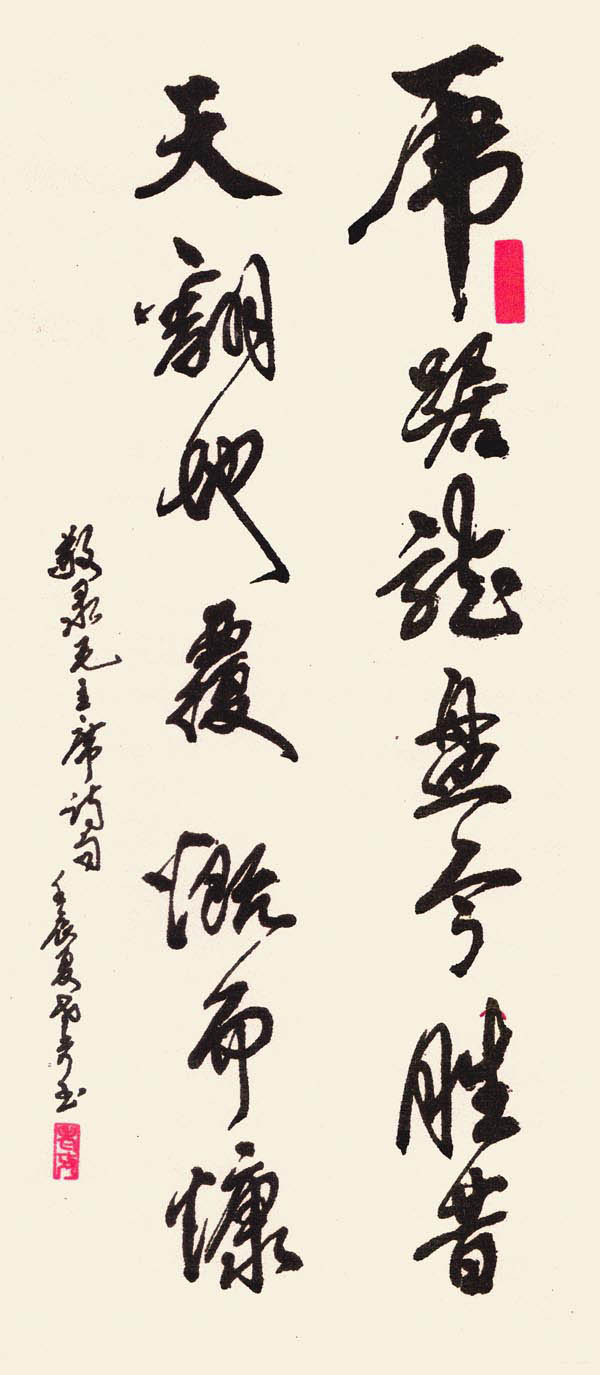 虎踞龍盘今胜昔
天翻地覆慨而慷
敬录毛主席诗句 壬辰夏 书